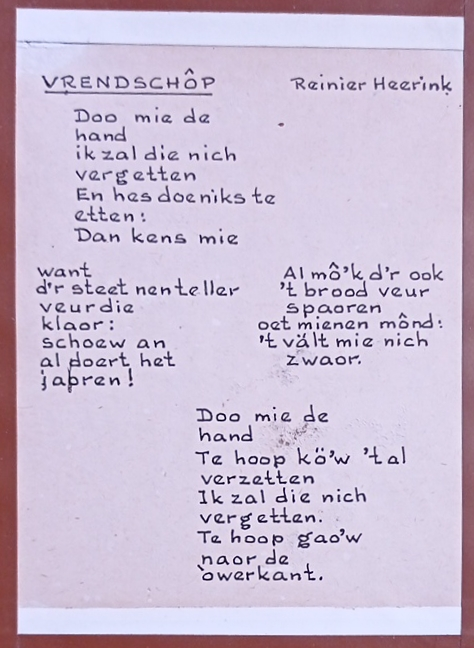 VRENDSCHÔP
Reinier Heerink
Doo mie de
hand
ik zal die nich
vergetten
En hes doe niks te
etten:
Dan kens mie
want
d'r steet nen teller
veur die
klaor:
schoew an
al doert het
japren!
Al mô'k d'r ook
't brood veur
spaoren
oet mienen mônd:
't vält mie nich
zwaor.
Doo mie de
hand
Te hoop kö'w 't al
verzetten
Ik zal die nich
vergetten.
Te hoop gao'w
naor de
òwerkant.